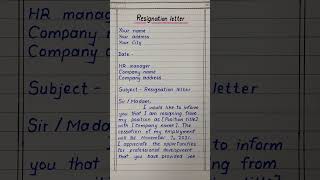 Resignation letter
Your name
Your address
Your City
Date -
HR manager
Company name
Company address
Subject:- Resignation letter
Sir / Madam,
I would like to inform
you that I am resigning from
my position as [Position title]
with [Company name]. The
cessation of my employment
will be November 7, 2021.
I appreciate the opportunities
for professional development
that you have provided me